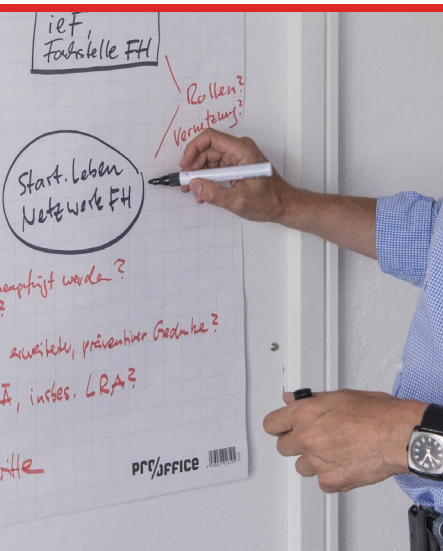 ieF,
Fachstelle FH
Rollen?
Vernetzung?
Start. Leben
Netzwerk FH
werden?
?
erweiterter, präventiver Gedanke?
Ä, insbes. LRA?
PRO/OFFICE